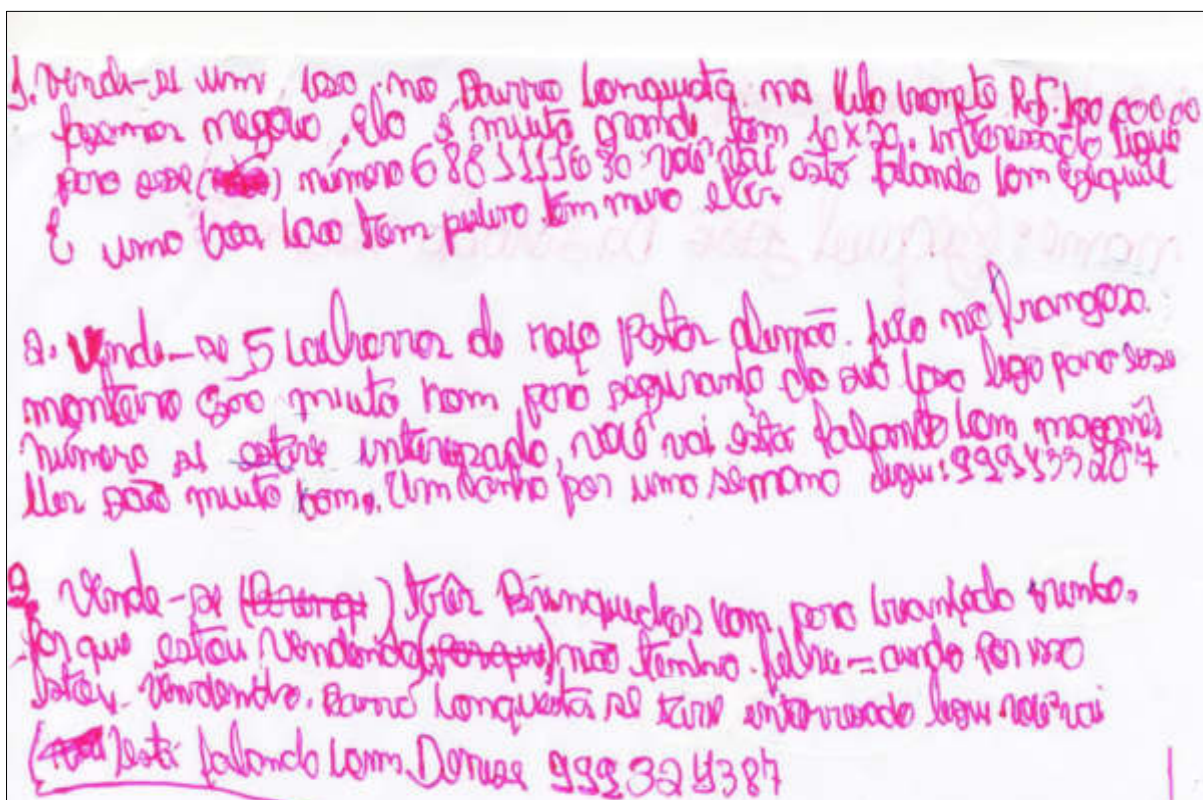 1. Vende-se um casa no Bairro Conquista na Vila Ivonete R$: 100.000,00
fazemos negócio. Ela é muito grande tem 10x20. interessado ligue
para esse número 6881111630 você vai está falando com Ezequiel
É uma boa casa tem muro etc.
2. Vende-se 5 cachorros de raça Pastor Alemão. fica no frangoso.
monteiro são muito bom para segurança da sua casa liga para esse
número se interezado, você vai está falando com
eles são muito bom. Um banho por uma semana ligue: 999133287
3. Vende-se três Brinquedos bom para
Por que estou vendendo não tenho. por isso
estou vendendo. Conquista se você vai
está falando com Denise 999324387